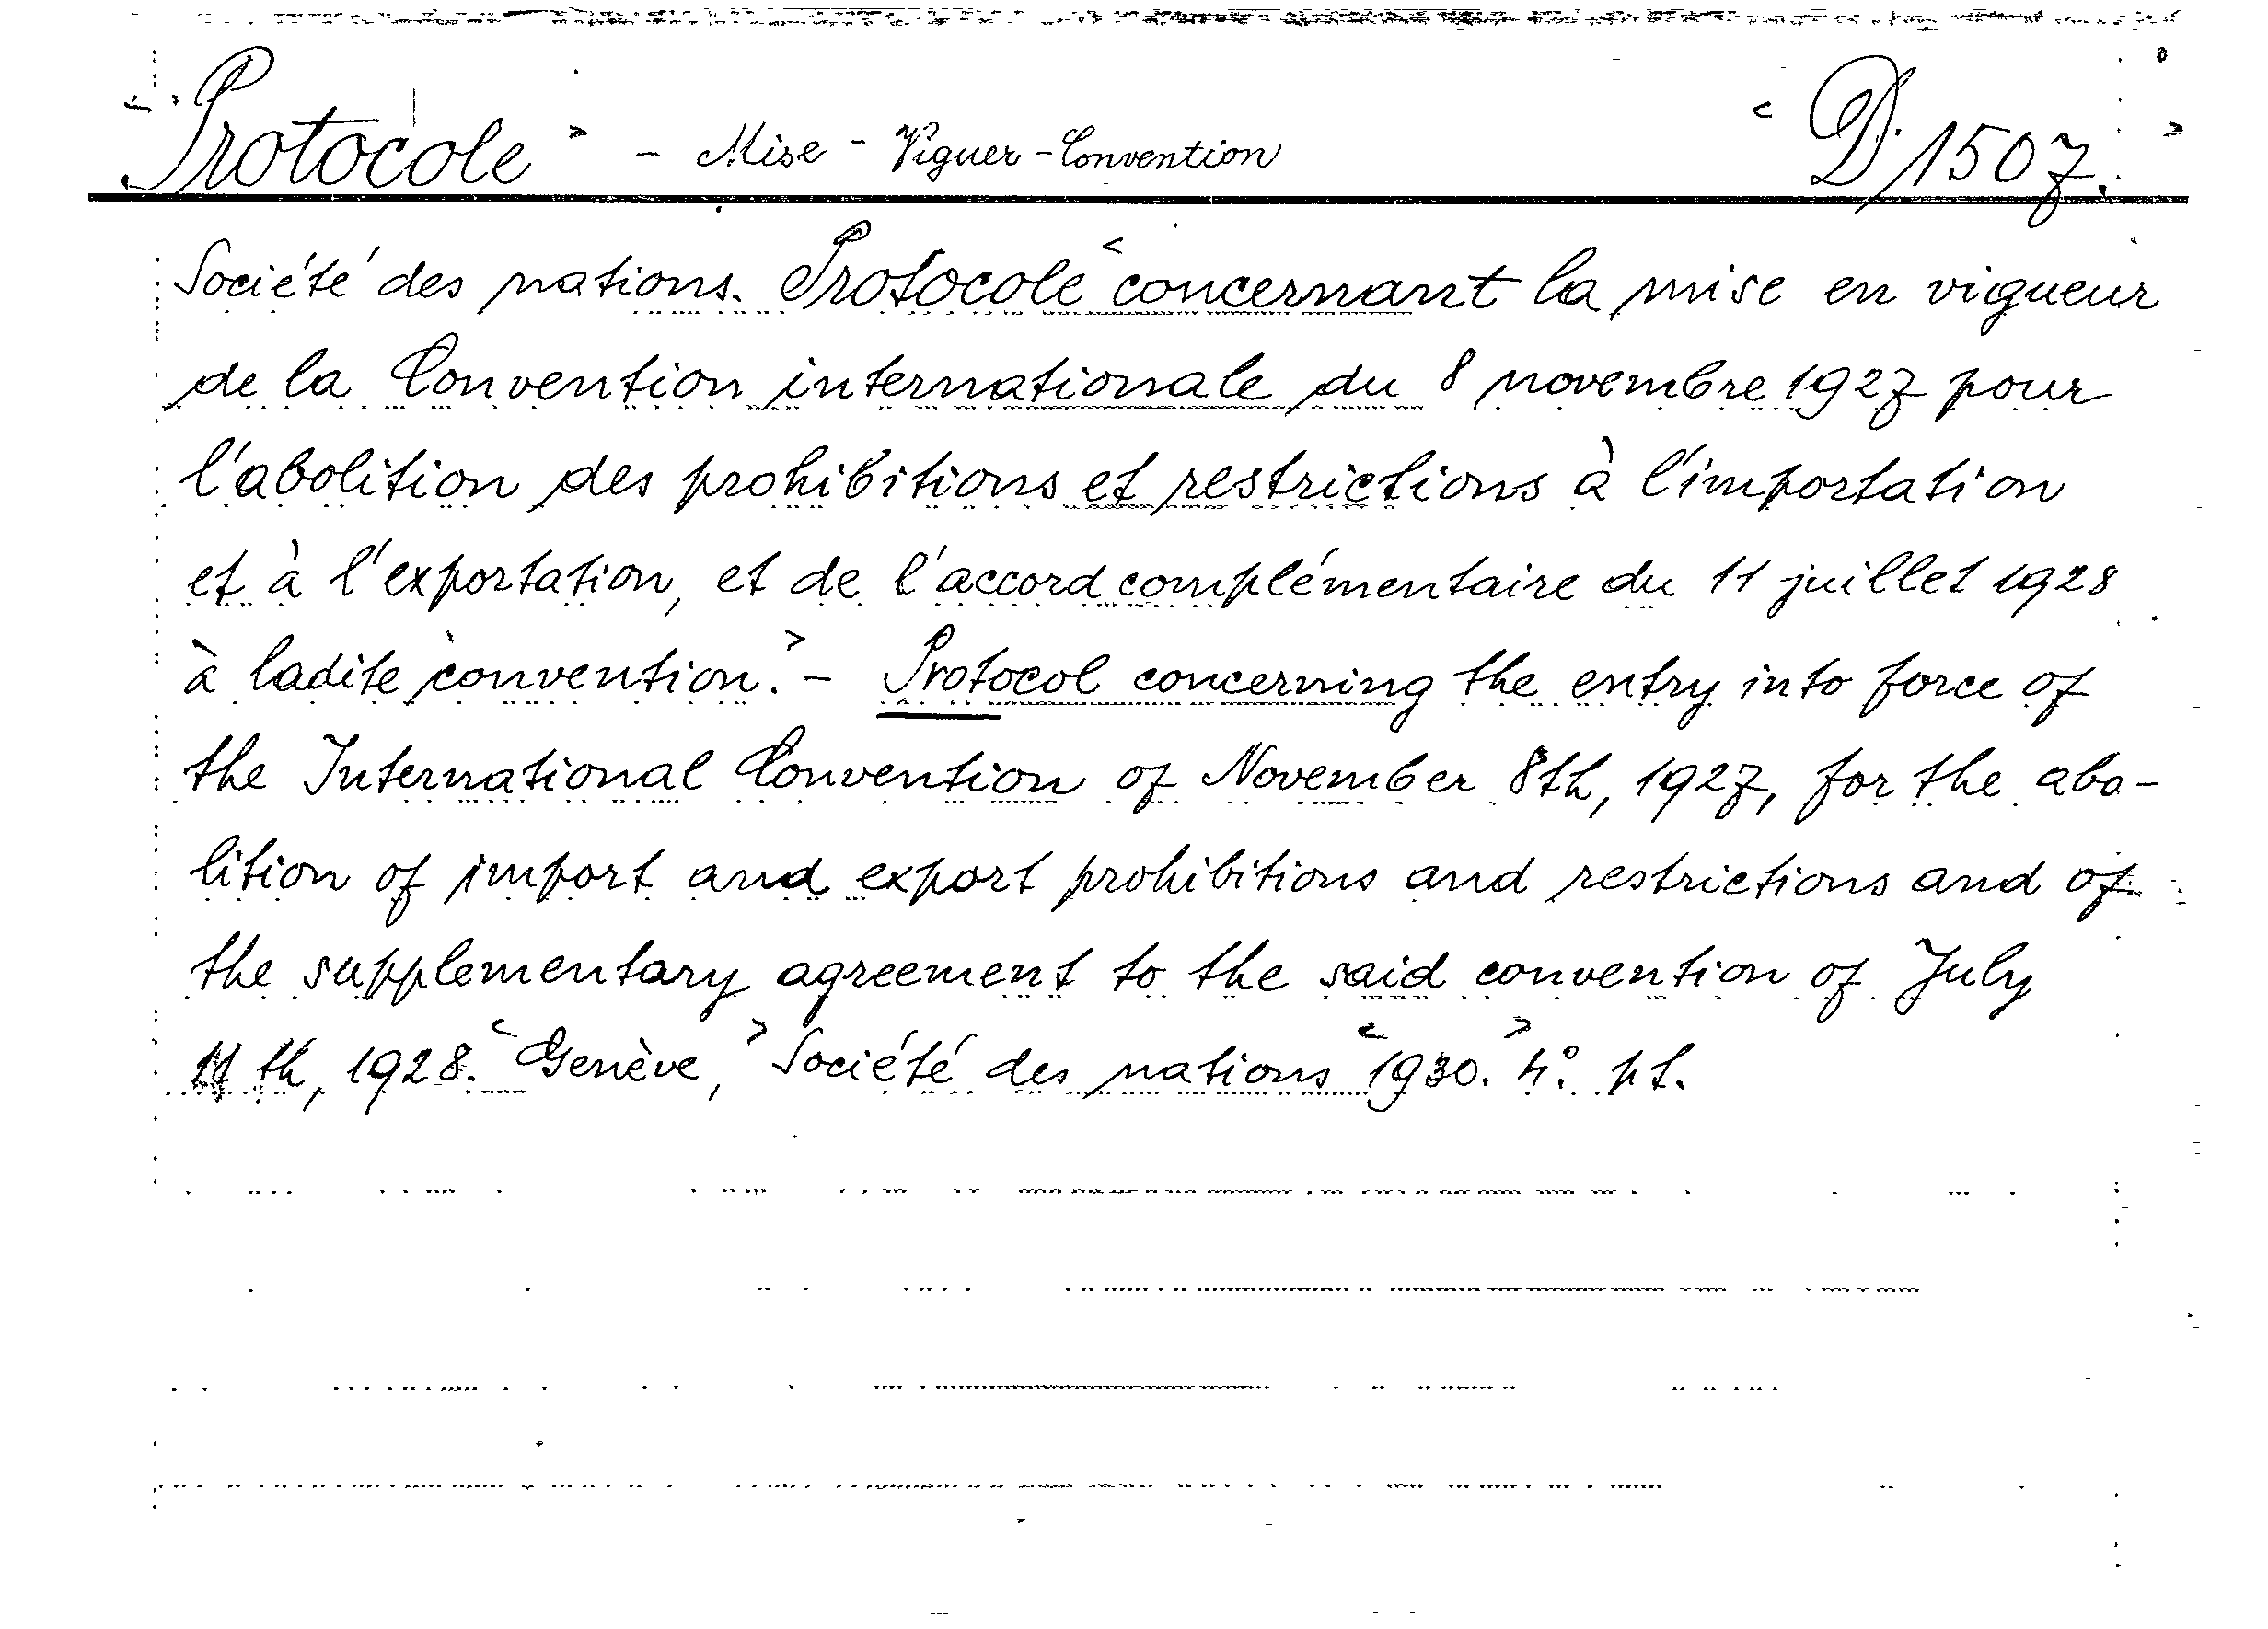 <Protocole> - Mise - Viguer - Convention <D, 1507.>
Société des nations. Protocole <concernant la mise en vigueur
de la Convention internationale du 8 novembre 1927 pour
l'abolition des prohibitions et restrictions à l'importation
et à l'exportation, et de l'accord complémentaire du 11 juillet 1928
à ladite convention.> - Protocol concerning the entry into force of
the International Convention of November 8th, 1927, for the abo-
lition of import and export prohibitions and restrictions and of
the supplementary agreement to the said convention of July
11th, 1928. <Genève,> Société des nations <1930.> 4°. pt.